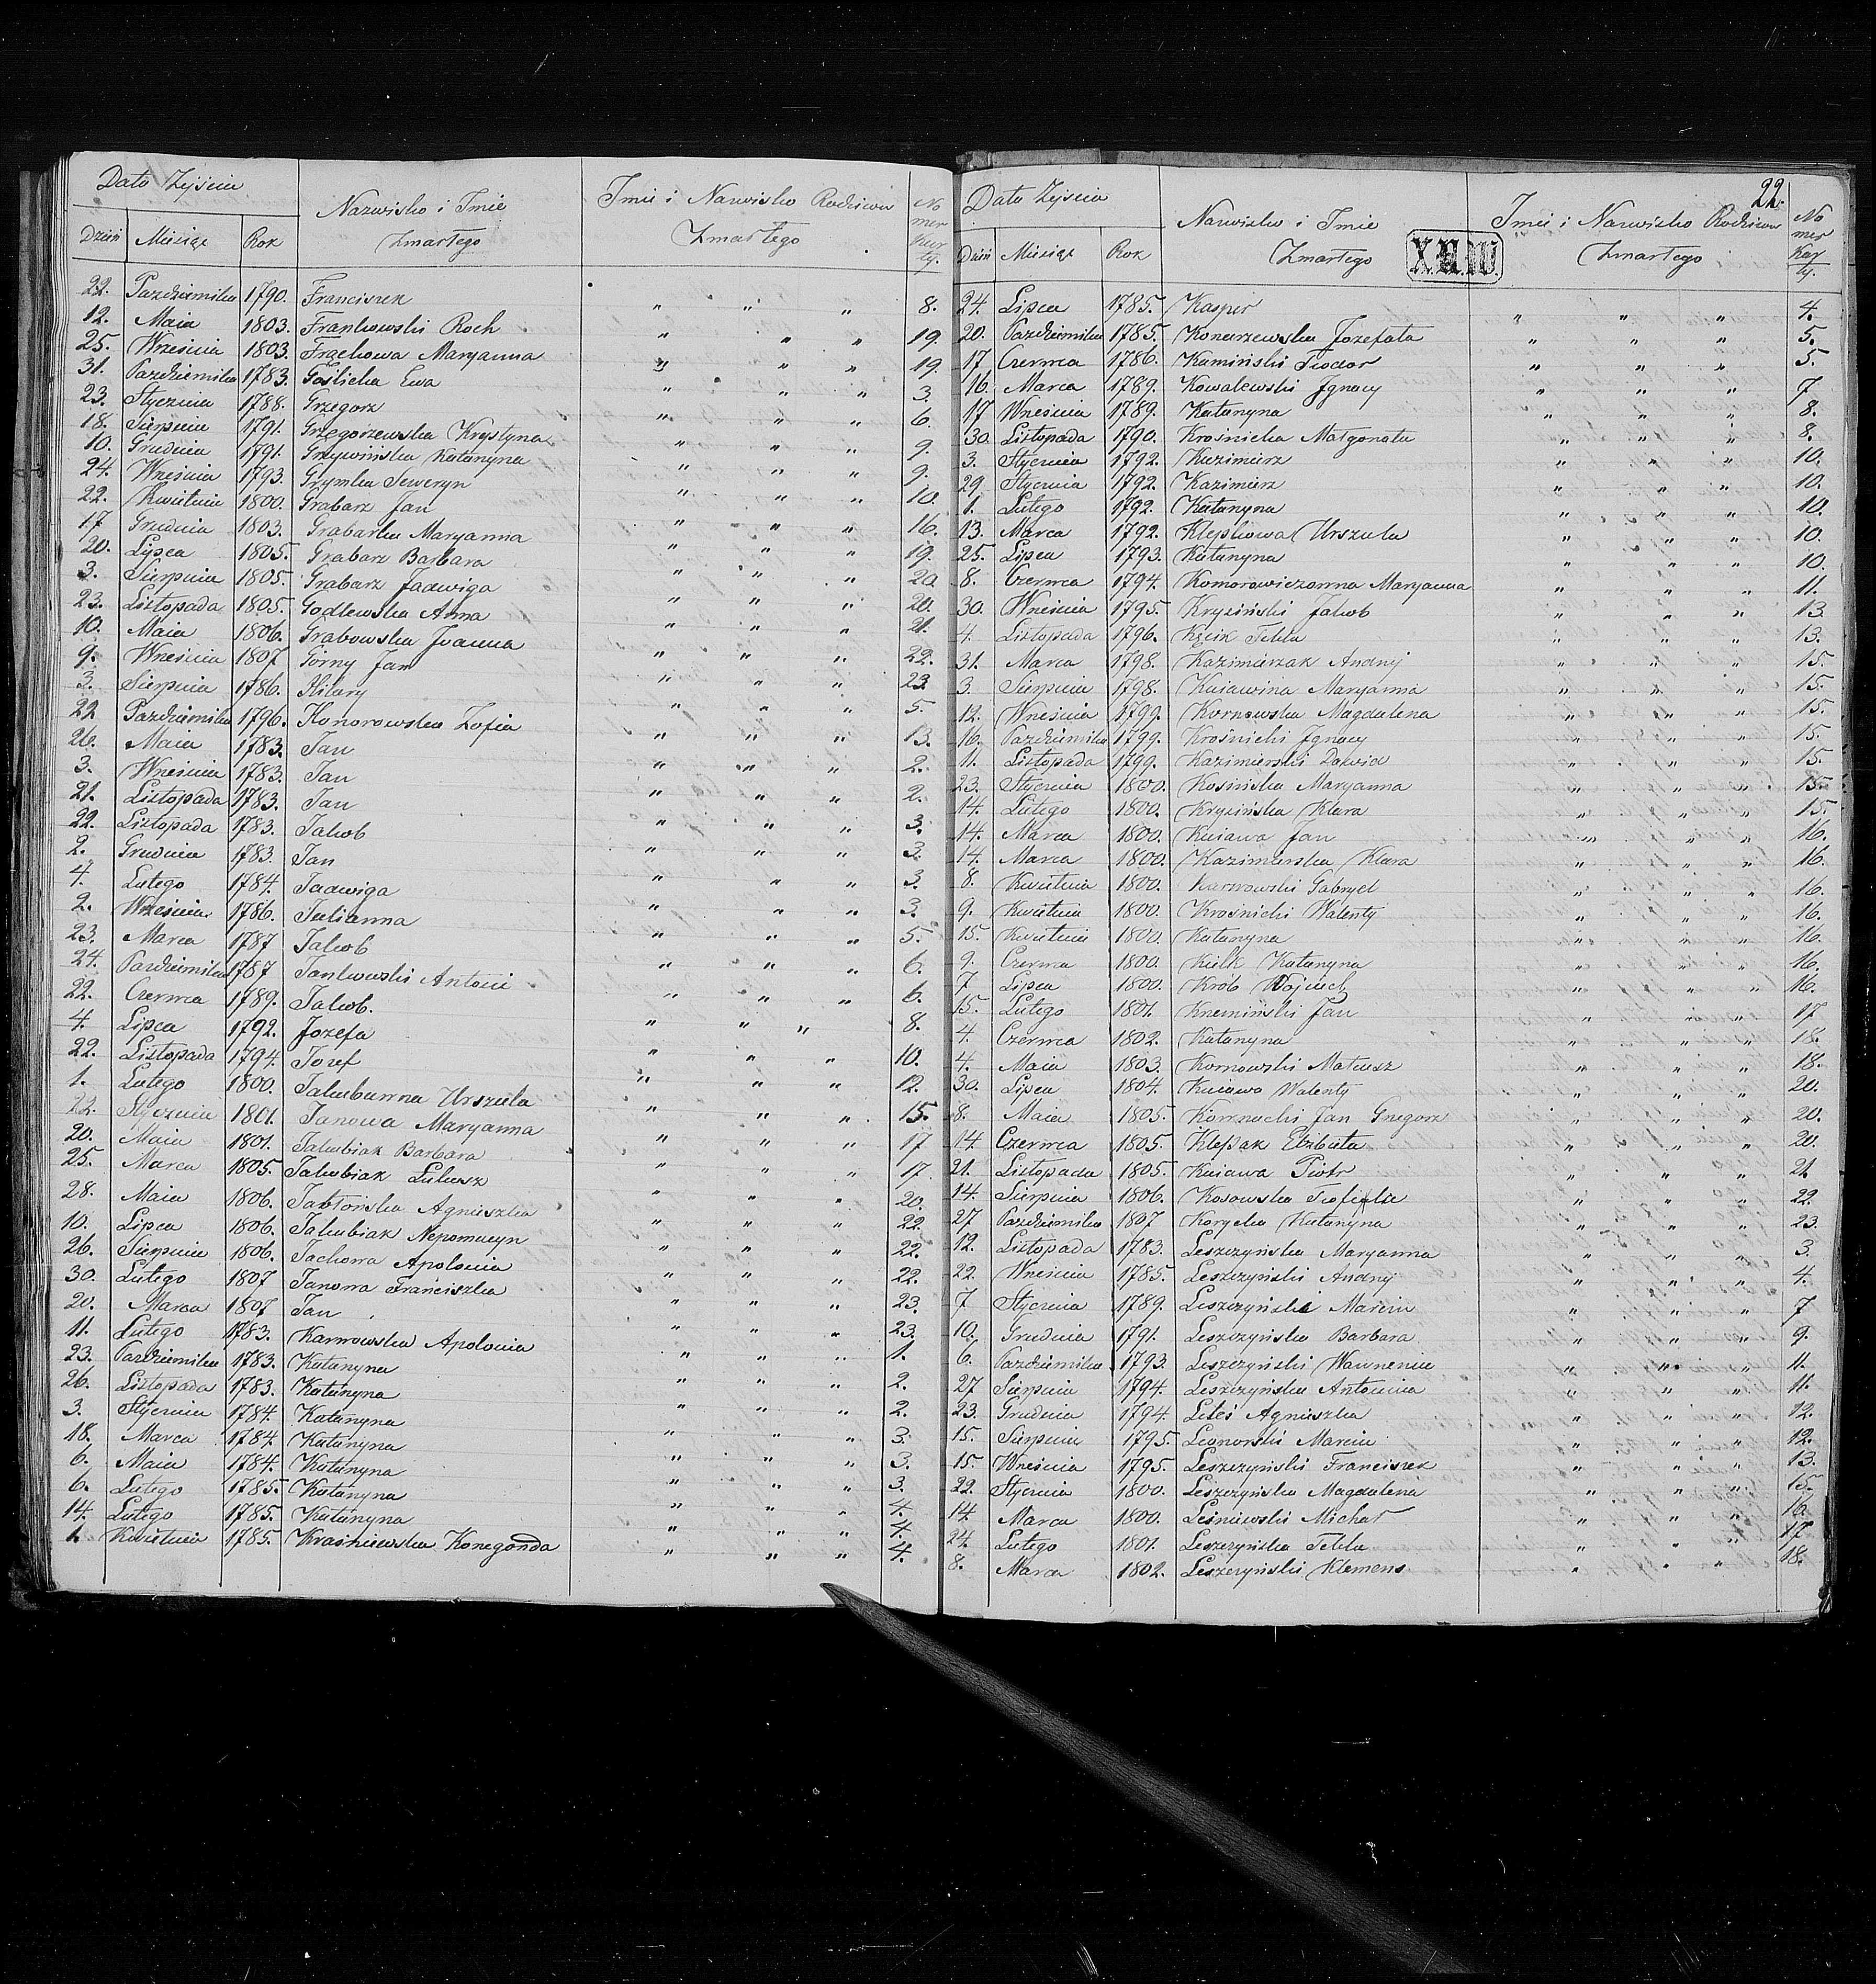 Data Zejścia
Nazwisko i Imie Zmartego
Imie i Nazwisko Rodziców Zmartego
Nomer Karty.
Dzień Miesiąc Rok
22. Pazdziernika 1790. Franciszek " " " 8.
12. Maia 1803. Frankowski Roch " " " 19.
25. Września 1803. Frąckowa Maryanna " " " 19.
31. Pazdziernika 1783. Goślicka Ewa " " " 3.
23. Stycznia 1788. Grzegorz " " " 6.
18. Sierpnia 1791. Grzegorzewska Krystyna " " " 9.
10. Grudnia 1791. Grzywińska Katarzyna " " " 9.
24. Września 1793. Grymka Seweryn " " " 10.
22. Kwietnia 1800. Grabarz Jan " " " 16.
17 Grudnia 1803. Grabarka Maryanna " " " 19.
20. Lipca 1805. Grabarz Barbara " " " 20.
3. Sierpnia 1805. Grabarz Jadwiga " " " 20.
23. Listopada 1805. Godlewska Anna " " " 21.
10. Maia 1806. Grabowska Joanna " " " 22.
9. Września 1807 Górny Jan " " " 23.
3. Sierpnia 1786. Hilary " " " 5.
22 Pazdziernika 1796. Honorowska Zofia " " " 13.
26. Maia 1783. Jan " " " 2.
3. Września 1783. Jan " " " 2.
21. Listopada 1783. Jan " " " 3.
22. Listopada 1783. Jakob " " " 3.
2. Grudnia 1783. Jan " " " 3.
4. Lutego 1784. Jadwiga " " " 3.
2. Września 1786. Julianna " " " 5.
23. Marca 1787 Jakob " " " 6.
24. Pazdziernika 1787 Jankowski Antoni " " " 6.
22. Czerwca 1789. Jakob. " " " 8.
4. Lipca 1792. Jozefa " " " 10.
22. Listopada 1794. Jozef " " " 12.
1. Lutego 1800. Jakubowna Urszula " " " 15.
22. Stycznia 1801. Janowa Maryanna " " " 17
20. Maia 1801. Jakubiak Barbara " " " 17.
25. Marca 1805. Jakubiak Łukasz " " " 20.
28. Maia 1806. Jabłońska Agnieszka " " " 22.
10. Lipca 1806. Jakubiak Nepomucyn " " " 22.
26. Sierpnia 1806. Jachowa Apolonia " " " 22.
30. Lutego 1807 Janowa Franciszka " " " 23.
20. Marca 1807 Jan " " " 23.
11. Lutego 1783. Karwowska Apolonia " " " 1.
23. Pazdziernika 1783. Katarzyna " " " 2.
26. Listopada 1783. Katarzyna " " " 2.
3. Stycznia 1784. Katarzyna " " " 3.
18. Marca 1784 Katarzyna " " " 3.
6. Maia 1784. Katarzyna " " " 3.
6. Lutego 1785. Katarzyna " " " 4.
14. Lutego 1785. Katarzyna " " " 4.
1. Kwietnia 1785. Kraśniewska Konegonda " " " 4.
22.
Data Zejścia
Nazwisko i Imie Zmartego
X.VI.IV.
Imie i Nazwisko Rodziców Zmartego
Nomer Karty.
Dzień Miesiąc Rok
24. Lipca 1785. Kasper " " " 4.
20. Pazdziernika 1785. Konarzewska Jozefata " " " 5.
17. Czerwca 1786. Kamiński Teodor " " " 5.
16. Marca 1789. Kowalewski Jgnacy " " " 7
17 Września 1789. Katarzyna " " " 8.
30. Listopada 1790. Krośnicka Małgorzata " " " 8.
3. Stycznia 1792. Kazimierz " " " 10.
29. Stycznia 1792. Kazimierz " " " 10.
1. Lutego 1792. Katarzyna " " " 10.
13. Marca 1792. Klepkowa Urszula " " " 10.
25. Lipca 1793. Katarzyna " " " 10.
8. Czerwca 1794. Komorowiczowna Maryanna " " " 11.
30. Września 1795. Krysiński Jakob " " " 13
4. Listopada 1796. Kącik Tekla " " " 13.
31. Marca 1798. Kazimierzak Andrzej " " " 15.
3. Sierpnia 1798. Kuiawina Maryanna " " " 15.
12. Września 1799. Kornowska Magdalena " " " 15.
16. Pazdziernika 1799. Krośnicki Jgnacy " " " 15.
11. Listopada 1799. Kazimierski Dawid " " " 15.
23. Stycznia 1800. Kosińska Maryanna " " " 15.
14. Lutego 1800. Krysińska Klara " " " 15.
14. Marca 1800. Kuiawa Jan " " " 16.
14. Marca 1800. Kazimierska Klara " " " 16.
8. Kwietnia 1800. Karwowski Gabryel " " " 16.
9. Kwietnia 1800. Krośnicki Walenty " " " 16.
15. Kwietnia 1800. Katarzyna " " " 16.
9. Czerwca 1800. Kiełk Katarzyna " " " 16.
7 Lipca 1800. Krob Wojciech " " " 16.
15. Lutego 1801. Krzemiński Jan " " " 17
4. Czerwca 1802. Katarzyna " " " 18.
4. Maia 1803. Kornowski Mateusz " " " 18.
30. Lipca 1804. Kuiawa Walenty " " " 20.
8. Maia 1805. Kornacki Jan Grzegorz " " " 20.
14 Czerwca 1805. Klepak Elżbieta " " " 20.
21. Listopada 1805. Kuiawa Piotr " " " 21.
14. Sierpnia 1806. Kosowska Teofila " " " 22.
27 Pazdziernika 1807 Korycka Katarzyna " " " 23.
12. Listopada 1783. Leszczyńska Maryanna " " " 3.
22. Września 1785. Leszczyński Andrzej " " " 4.
7 Stycznia 1789. Leszczyński Marcin " " " 7
10. Grudnia 1791. Leszczyńska Barbara " " " 9.
6. Pazdziernika 1793. Leszczyński Wawrzeniec " " " 11.
27 Sierpnia 1794. Leszczyńska Antonina " " " 11.
23. Grudnia 1794. Agnieszka " " " 12.
15. Sierpnia 1795. Leonowski Marcin " " " 12.
15. Września 1795. Leszczyński Franciszek " " " 13.
22. Stycznia 1800. Leszczyńska Magdalena " " " 15.
14. Marca 1800. Leśniewski Michał " " " 16.
24. Lutego 1801. Leszczyńska Tekla " " " 17.
8. Marca 1802. Leszczyński Klemens " " " 18.